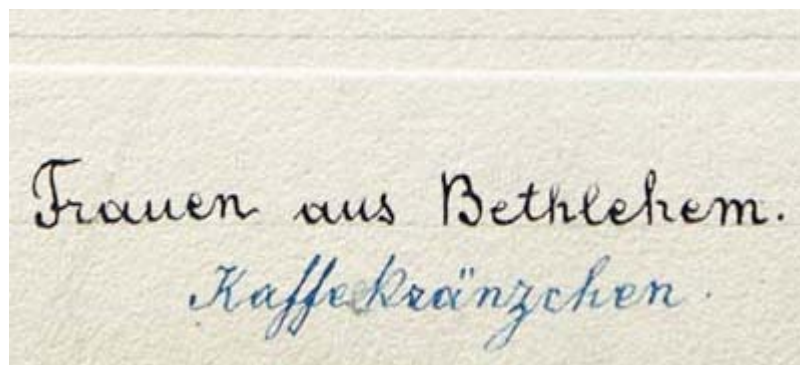 Frauen aus Bethlehem.
Kaffekränzchen.